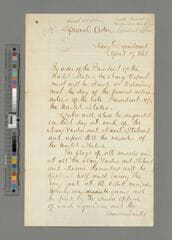 Special Order.
Navy Department
April 17, 1865.
By order of the President of the
United States the Navy Depart-
ment will be closed on Wednesday
next the day of the funeral solem-
nities of the late President of
the United States.
will also be suspended
on that day at each of the
Navy Yards and Naval Stations
and upon all the vessels of
the United States.
The flags of all vessels and
at all the Navy Yards and Stations
and Marine Barracks will be
kept at half mast during the
day and at 12 o'clock meridian
twenty one minute guns will
be fired by the senior officer
of each squadron and the